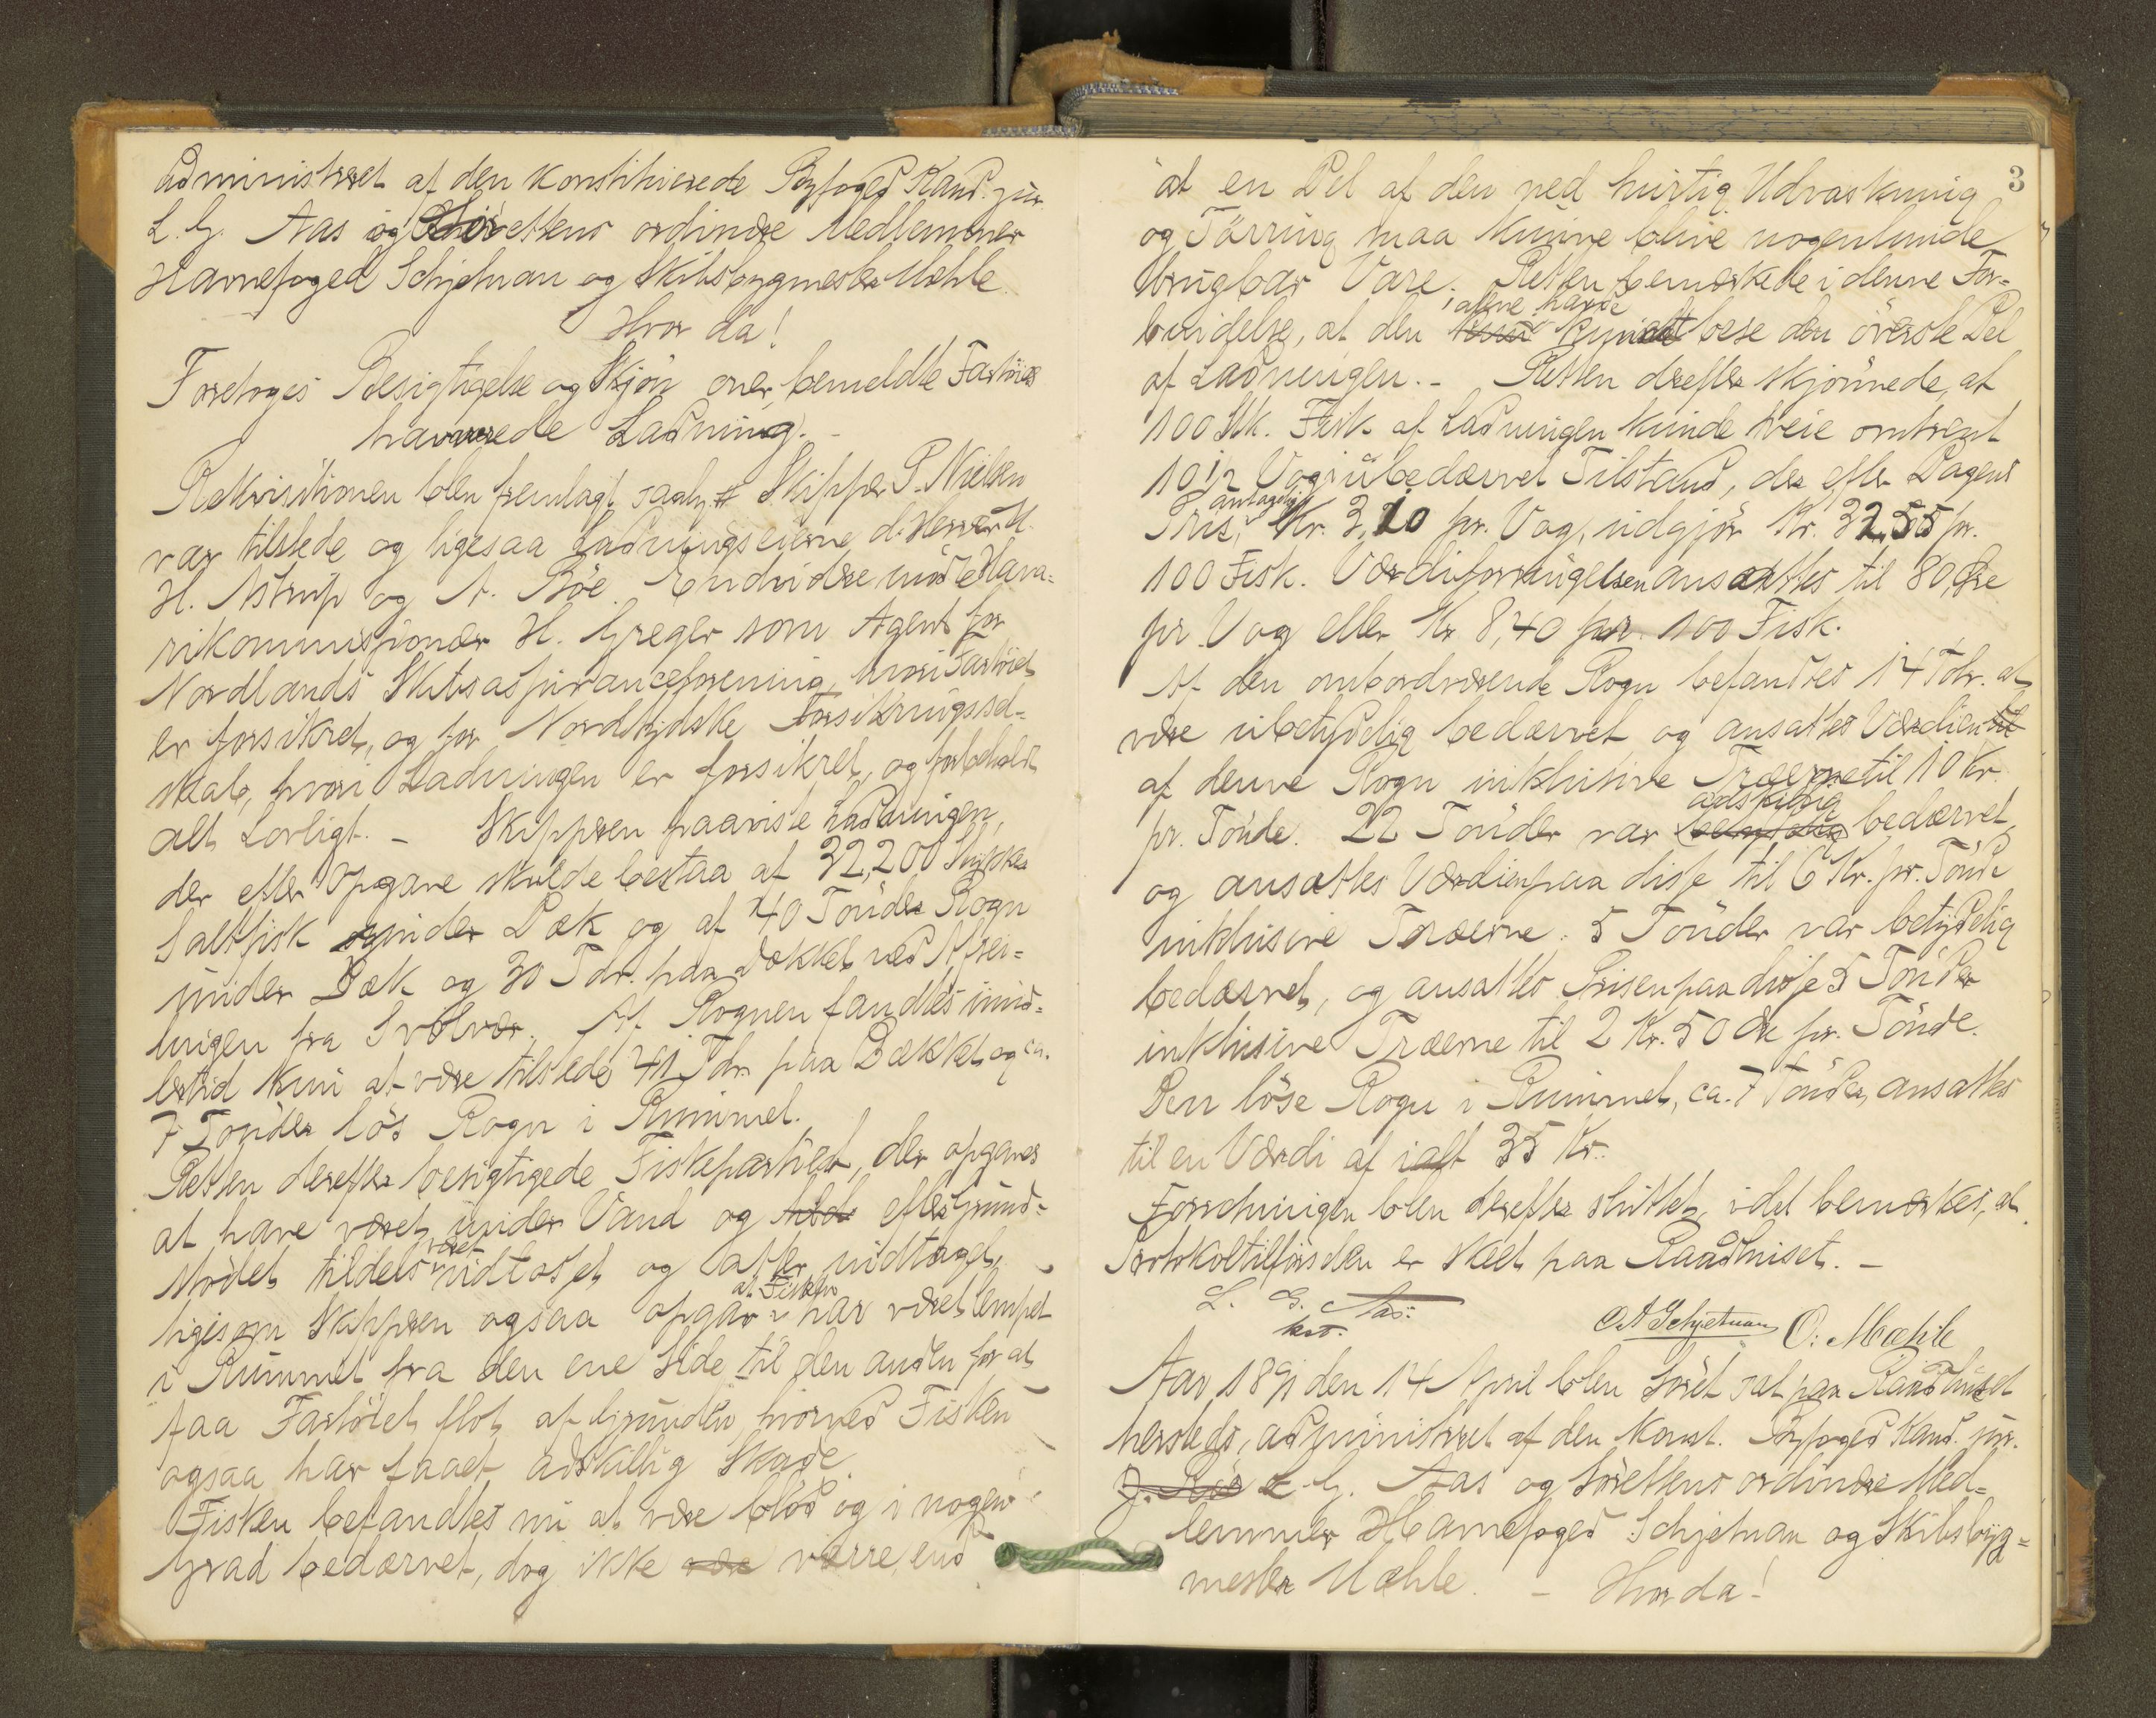 administreret af den konstituerede Byfoged Kand. jur.
L. G. Aas og Sørettens ordinære Medlemmer
Havnefoged Schjetnan og Skibsbygmester Mæhle
Hvor da!
Foretoges Besigtigelse og Skjøn over bemeldte Fartøies
havarerede Ladning. –
Rekvisitionen blev fremlagt saaly. # Skipper P. Nielsen
var tilstede og ligesaa Ladningseierne d'Herrer H.
H. Astrup og A. Böe. Endvidere mödte Hava-
rikommissionær H. Greger som Agent for
Nordlands Skibsassuranceforening, hvori Fartöiet
er forsikret, og for Nordtydske Forsikringssel-
skab, hvori Ladningen er forsikret, og forbeholdt
alt Lovligt. – Skipperen paaviste Ladningen,
der efter Opgave skulde bestaa af 32,200 Stykker
Saltfisk under Dæk og af 40 Tönder Rogn
under Dæk og 30 Tdr. paa Dækket ved Afsei-
lingen fra Svolvær. Af Rognen fandtes imid-
lertid kun at være tilstede 41 Tdr. paa Dækket og ca.
7 Tönder lös Rogn i Rummet.
Retten derefter besigtigede Fiskepartiet, der opgaves
at have været under Vand og efter Grund-
stödet tildels været udlosset og atter indtaget,
ligesom Skipperen ogsaa opgav at Fisken har været lempet
i Rummet fra den ene Side til den anden for at
faa Fartöiet flot af Grunden, hvorved Fisken
ogsaa har faaet adskillig Skade.
Fisken befandtes nu at være blöd og i nogen
Grad bedærvet, dog ikke være værre, end
3
at en Del af den ved hurtig Udvaskning
og Törring maa kunne blive nogenlunde
brugbar Vare. Retten bemærkede i denne For-
bindelse, at den alene havde kunnet bese den överste Del
af Ladningen. – Retten derefter skjönnede, at
100 Stk. Fisk af Ladningen kunde veie omtrent
10 1/2 Vog i ubedærvet Tilstand, der efter Dagens
Pris, antagelig Kr. 3,10 pr. Vog, udgjör Kr. 32,55 pr.
100 Fisk. Værdiforringelsen ansattes til 80 Öre
pr. Vog eller Kr 8,40 pr. 100 Fisk.
Af den ombordværende Rogn befandtes 14 Tdr. at
være ubetydelig bedærvet og ansattes Værdien til
af denne Rogn inklusive Træerne til 10 Kr.
pr. Tönde. 22 Tönder var betydelig adskillig bedærvet,
og ansattes Værdien paa disse til 6 Kr. pr. Tönde
inklusive Træerne. 5 Tönder var betydelig
bedærvet, og ansattes Prisen paa disse 5 Tönder
inklusive Træerne til 2 Kr. 50 Öre pr. Tönde.
Den löse Rogn i Rummet, ca. 7 Tönder, ansattes
til en Værdi af ialt 35 Kr.
Forretningen blev derefter sluttet, idet bemærkes, at
Protokoltilförselen er skeet paa Raadhuset. –
L. G. Aas.
kst.
O A Schjetnan O. Mæhle
Aar 1891 den 14 April blev Söret sat paa Raadhuset
hersteds, administreret af den konst. Byfoged Kand. jur.
L. G. Aas og Sörettens ordinære Med-
lemmer Havnefoged Schjetnan og Skibsbyg-
mester Mæhle. – Hvor da!